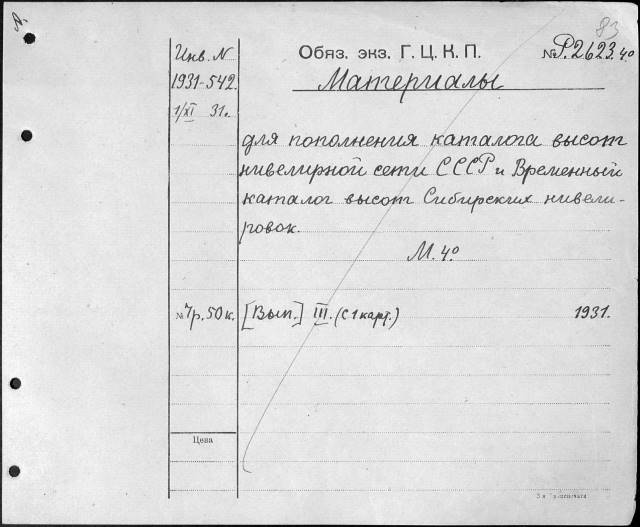 83
Инв. N
1931-542.
1/XI 31г.
Обяз. экз. Г. Ц. К. П.
№ Р.2623.4°
Материалы
для пополнения каталога высот
нивелирной сети СССР и Временный
каталог высот Сибирских нивели-
ровок.
М. 4°
№ 7р. 50к.
[Вып.] III. (С 1 карт.)
1931.
Цена